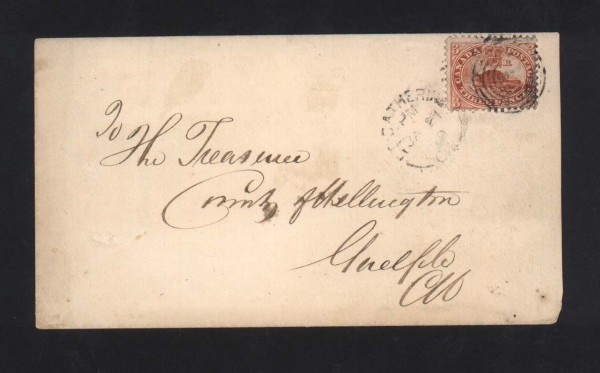 CANADA POSTAGE
THREE PENCE
ST CATHERINES
PM
C.W.
To
The Treasurer
County of Wellington
Guelph
CW